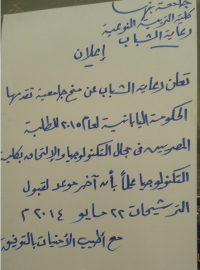 جامعة بنها
كلية التربية النوعية
رعاية الشباب
إعلان
تعلن رعاية الشباب عن منح جامعية تقدمها
الحكومة اليابانية لعام ٢٠١٥ للطلبة
المصريين فى مجال التكنولوجيا والإلتحاق بكلية
التكنولوجيا علماً بأن آخر موعد لقبول
الترشيحات ٢٢ مايو ٢٠١٤
مع أطيب الأمنيات بالتوفيق